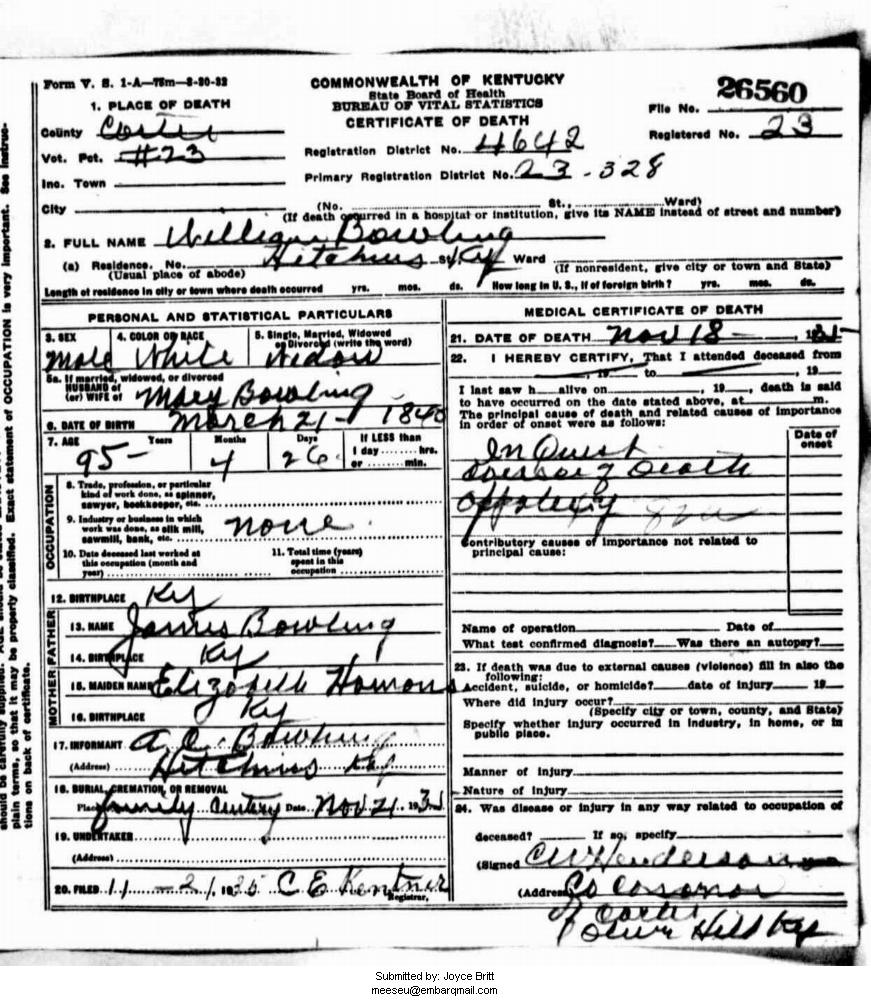 Form V. S. 1-A—75m—8-20-32
COMMONWEALTH OF KENTUCKY
State Board of Health
BUREAU OF VITAL STATISTICS
CERTIFICATE OF DEATH
26560
File No.
Registered No. 23
1. PLACE OF DEATH
County Carter
Vot. Pct. #23
Inc. Town
City
Registration District No. 4642
Primary Registration District No. 23-328
(No. St., Ward)
(If death occurred in a hospital or institution, give its NAME instead of street and number)
2. FULL NAME William Bowling
(a) Residence. No. Hitchins St. Ky Ward
(Usual place of abode) (If nonresident, give city or town and State)
Length of residence in city or town where death occurred yrs. mos. ds. How long in U. S., if of foreign birth? yrs. mos. ds.
PERSONAL AND STATISTICAL PARTICULARS
3. SEX 4. COLOR OR RACE 5. Single, Married, Widowed
or Divorced (write the word)
Male White Widow
5a. If married, widowed, or divorced
HUSBAND of
(or) WIFE of Mary Bowling
6. DATE OF BIRTH March 21- 1840
7. AGE Years Months Days If LESS than
95- 4 26 1 day hrs.
or min.
OCCUPATION
8. Trade, profession, or particular
kind of work done, as spinner,
sawyer, bookkeeper, etc.
9. Industry or business in which
work was done, as silk mill,
sawmill, bank, etc. none
10. Date deceased last worked at
this occupation (month and
year)
11. Total time (years)
spent in this
occupation
12. BIRTHPLACE Ky
FATHER
13. NAME James Bowling
14. BIRTHPLACE Ky
MOTHER
15. MAIDEN NAME Elizabeth Hamons
16. BIRTHPLACE Ky
17. INFORMANT A. C. Bowling
(Address) Hitchins Ky
18. BURIAL, CREMATION, OR REMOVAL
Place family Date Nov 21, 193
19. UNDERTAKER
(Address)
20. FILED 11-21, 1935 C E Kentner
Registrar.
MEDICAL CERTIFICATE OF DEATH
21. DATE OF DEATH Nov 18-, 193
22. I HEREBY CERTIFY, That I attended deceased from
, 19 to , 19
I last saw h alive on , 19 , death is said
to have occurred on the date stated above, at m.
The principal cause of death and related causes of importance
in order of onset were as follows:
Date of
onset
In Quest
of Death
Contributory causes of importance not related to
principal cause:
Name of operation Date of
What test confirmed diagnosis? Was there an autopsy?
23. If death was due to external causes (violence) fill in also the
following:
Accident, suicide, or homicide? date of injury 19
Where did injury occur?
(Specify city or town, county, and State)
Specify whether injury occurred in industry, in home, or in
public place.
Manner of injury
Nature of injury
24. Was disease or injury in any way related to occupation of
deceased? If so, specify
(Signed CW Henderson
(Address) Co Coronor
of Carter
Olive Hill Ky
should be carefully supplied.
plain terms, so that it may be properly classified. Exact statement of OCCUPATION is very important. See instruc-
tions on back of certificate.
Submitted by: Joyce Britt
meeseu@embarqmail.com